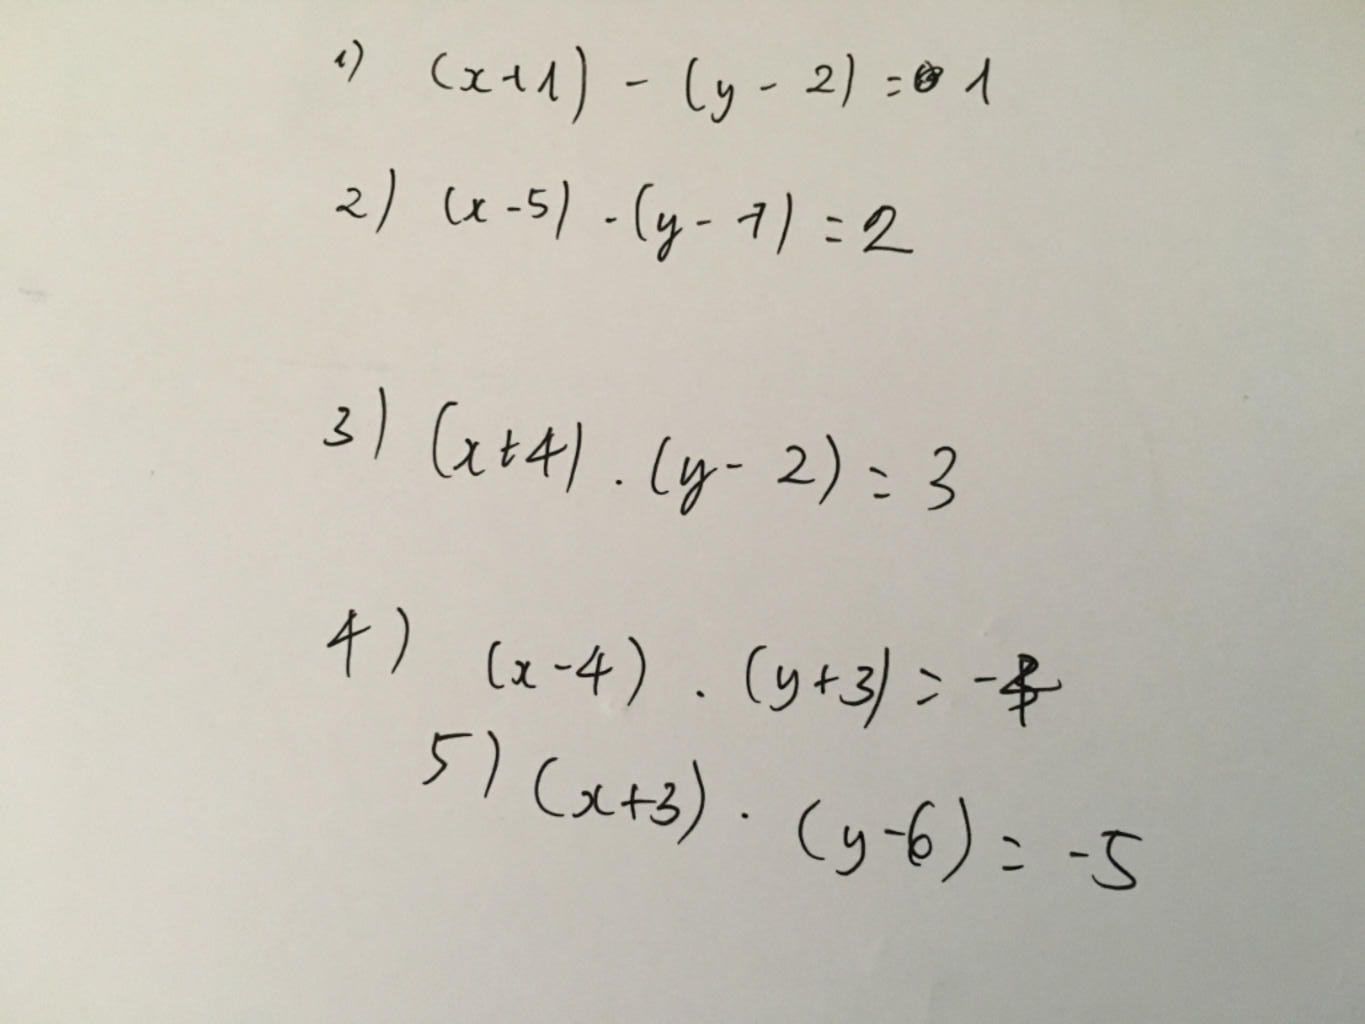 1) (x+1) - (y - 2) = 1
2) (x-5) . (y - 7) = 2
3) (x+4) . (y - 2) = 3
4) (x-4) . (y+3) = -
5) (x+3) . (y-6) = -5